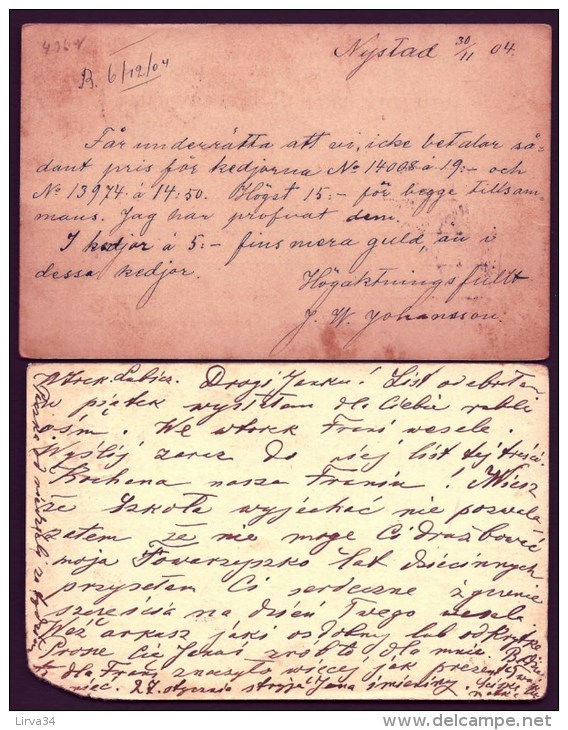 4364
B. 6/12/04
Nystad 30/11 04.
Får underrätta att vi, icke betalar så-
dant pris för kedjorna No 14008 á 19:- och
No 13974 á 14:50. Högst 15:- för begge tillsam-
mans. Jag har profvat dem.
I kedjor á 5:- fins mera guld, än i
dessa kedjor.
Högaktningsfullt
J. W. Johansson.
Drogi Janku! List odebrałam
w piątek wysłałam dla Ciebie rubli
ośm. We wtorek Frani wesele.
Wyślij zaraz do niej list tej treści.
Kochana nasza Franiu! Wiesz
że szkoła wyjechać nie pozwala
zatem że nie mogę Ci drużbować
moja Towarzyszko lat dziecinnych
przysyłam Ci serdeczne życzenie
szczęścia na dzień Twego wesela
Weź arkusz jaki ozdobny lub odkrytkę
Proszę Cię Januś zrób to dla mnie.
to dla Frani znaczyło więcej jak prezent
27. stycznia stryja Jana imieniny
Lirva34
www.delcampe.net